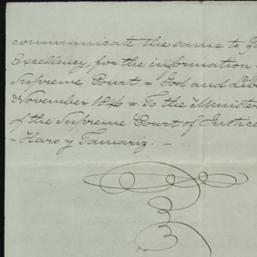 communicate the same to Y
Excellency, for the information
Supreme Court = God and Lib
November 1846 = To the Minister
of the Supreme Court of Justice
- Haro y Tamariz. -